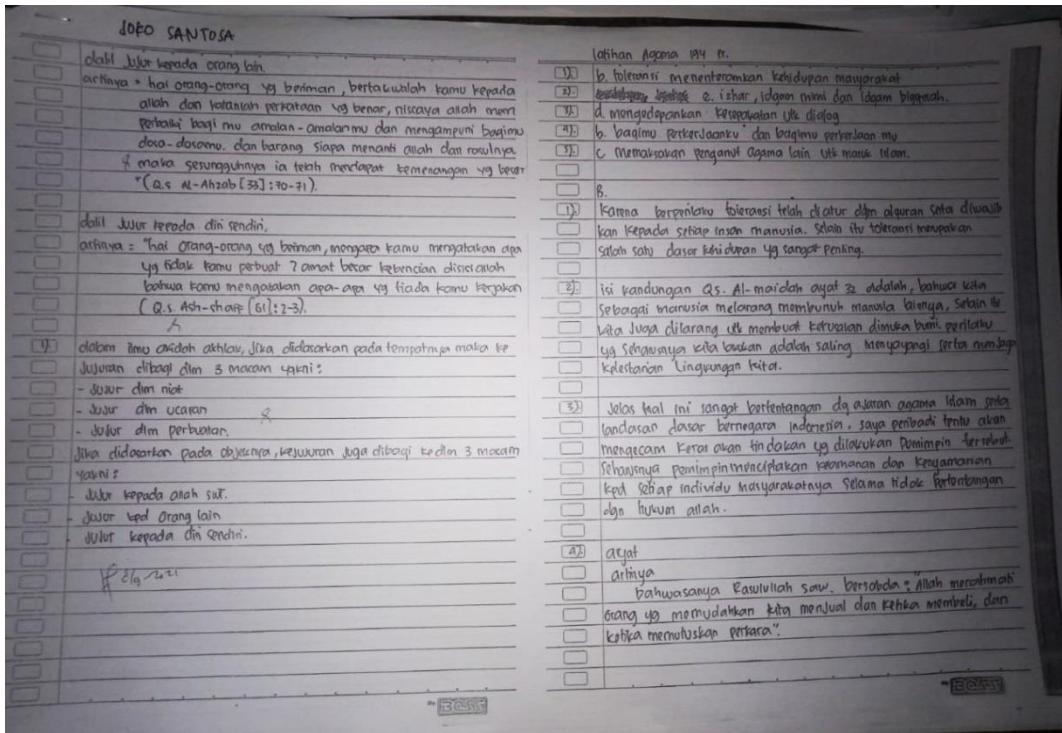 JOKO SANTOSA
dalil Jujur kepada orang lain.
artinya = hai orang-orang yg beriman, bertakwalah kamu kepada
allah dan katanlah perkataan yg benar, niscaya allah mem
perbaiki bagi mu amalan-amalanmu dan mengampuni bagimu
dosa-dosamu. dan barang siapa menanti allah dan rosulnya
maka sesungguhnya ia telah mendapat kemenangan yg besar
"(Q.s Al-Ahzab [33] : 70-71).
dalil Jujur kepada diri sendiri,
artinya = "hai orang-orang yg beriman, mengapa kamu mengatakan apa
yg tidak kamu perbuat ? amat besar kebencian disisi allah
bahwa kamu mengatakan apa-apa yg tiada kamu kerjakan
(Q.s. Ash-shaff [61] : 2-3).
1). dalam ilmu akidah akhlak, Jika didasarkan pada tempatnya maka ke
Jujuran dibagi dlm 3 macam yakni :
- Jujur dlm niat
- Jujur dlm ucapan
- Jujur dlm perbuatan.
Jika didasarkan pada objeknya, kejujuran Juga dibagi kedlm 3 macam
yakni :
- Jujur kepada allah swt.
- Jujur kpd orang lain
- Jujur kepada diri sendiri.
2021
BOSS
latihan Agama 194 pr.
1). b. toleransi menenteramkan kehidupan masyarakat
2). e. izhar, idgam mimi dan idgam bigunnah.
3). d. mengedepankan kesepakatan utk dialog
4). b. bagimu perkerjaanku dan bagimu perkerjaan mu
5). c memaksakan penganut agama lain utk masuk islam.
B.
1). Karena berperilaku toleransi telah diatur dlm alquran serta diwajib
kan kepada setiap insan manusia. Selain itu toleransi merupakan
salah satu dasar kehidupan yg sangat penting.
2). isi kandungan Qs. Al-maidah ayat 32 adalah, bahwa kita
sebagai manusia melarang membunuh manusia lainya, selain itu
kita Juga dilarang utk membuat kerusakan dimuka bumi. perilaku
yg seharusnya kita lakukan adalah saling menyayangi serta menjaga
kelestarian lingkungan kita.
3). Jelas hal ini sangat bertentangan dg ajaran agama islam serta
landasan dasar bernegara indonesia, saya peribadi tentu akan
mengecam keras akan tindakan yg dilakukan pemimpin tersebut.
Seharusnya pemimpin menciptakan keamanan dan kenyamanan
kpd setiap individu masyarakatnya selama tidak pertentangan
dgn hukum allah.
4). ayat
artinya
bahwasanya Rasulullah saw. bersabda : "Allah merahmati
orang yg memudahkan kita menjual dan ketika membeli, dan
ketika memutuskan perkara".
BOSS